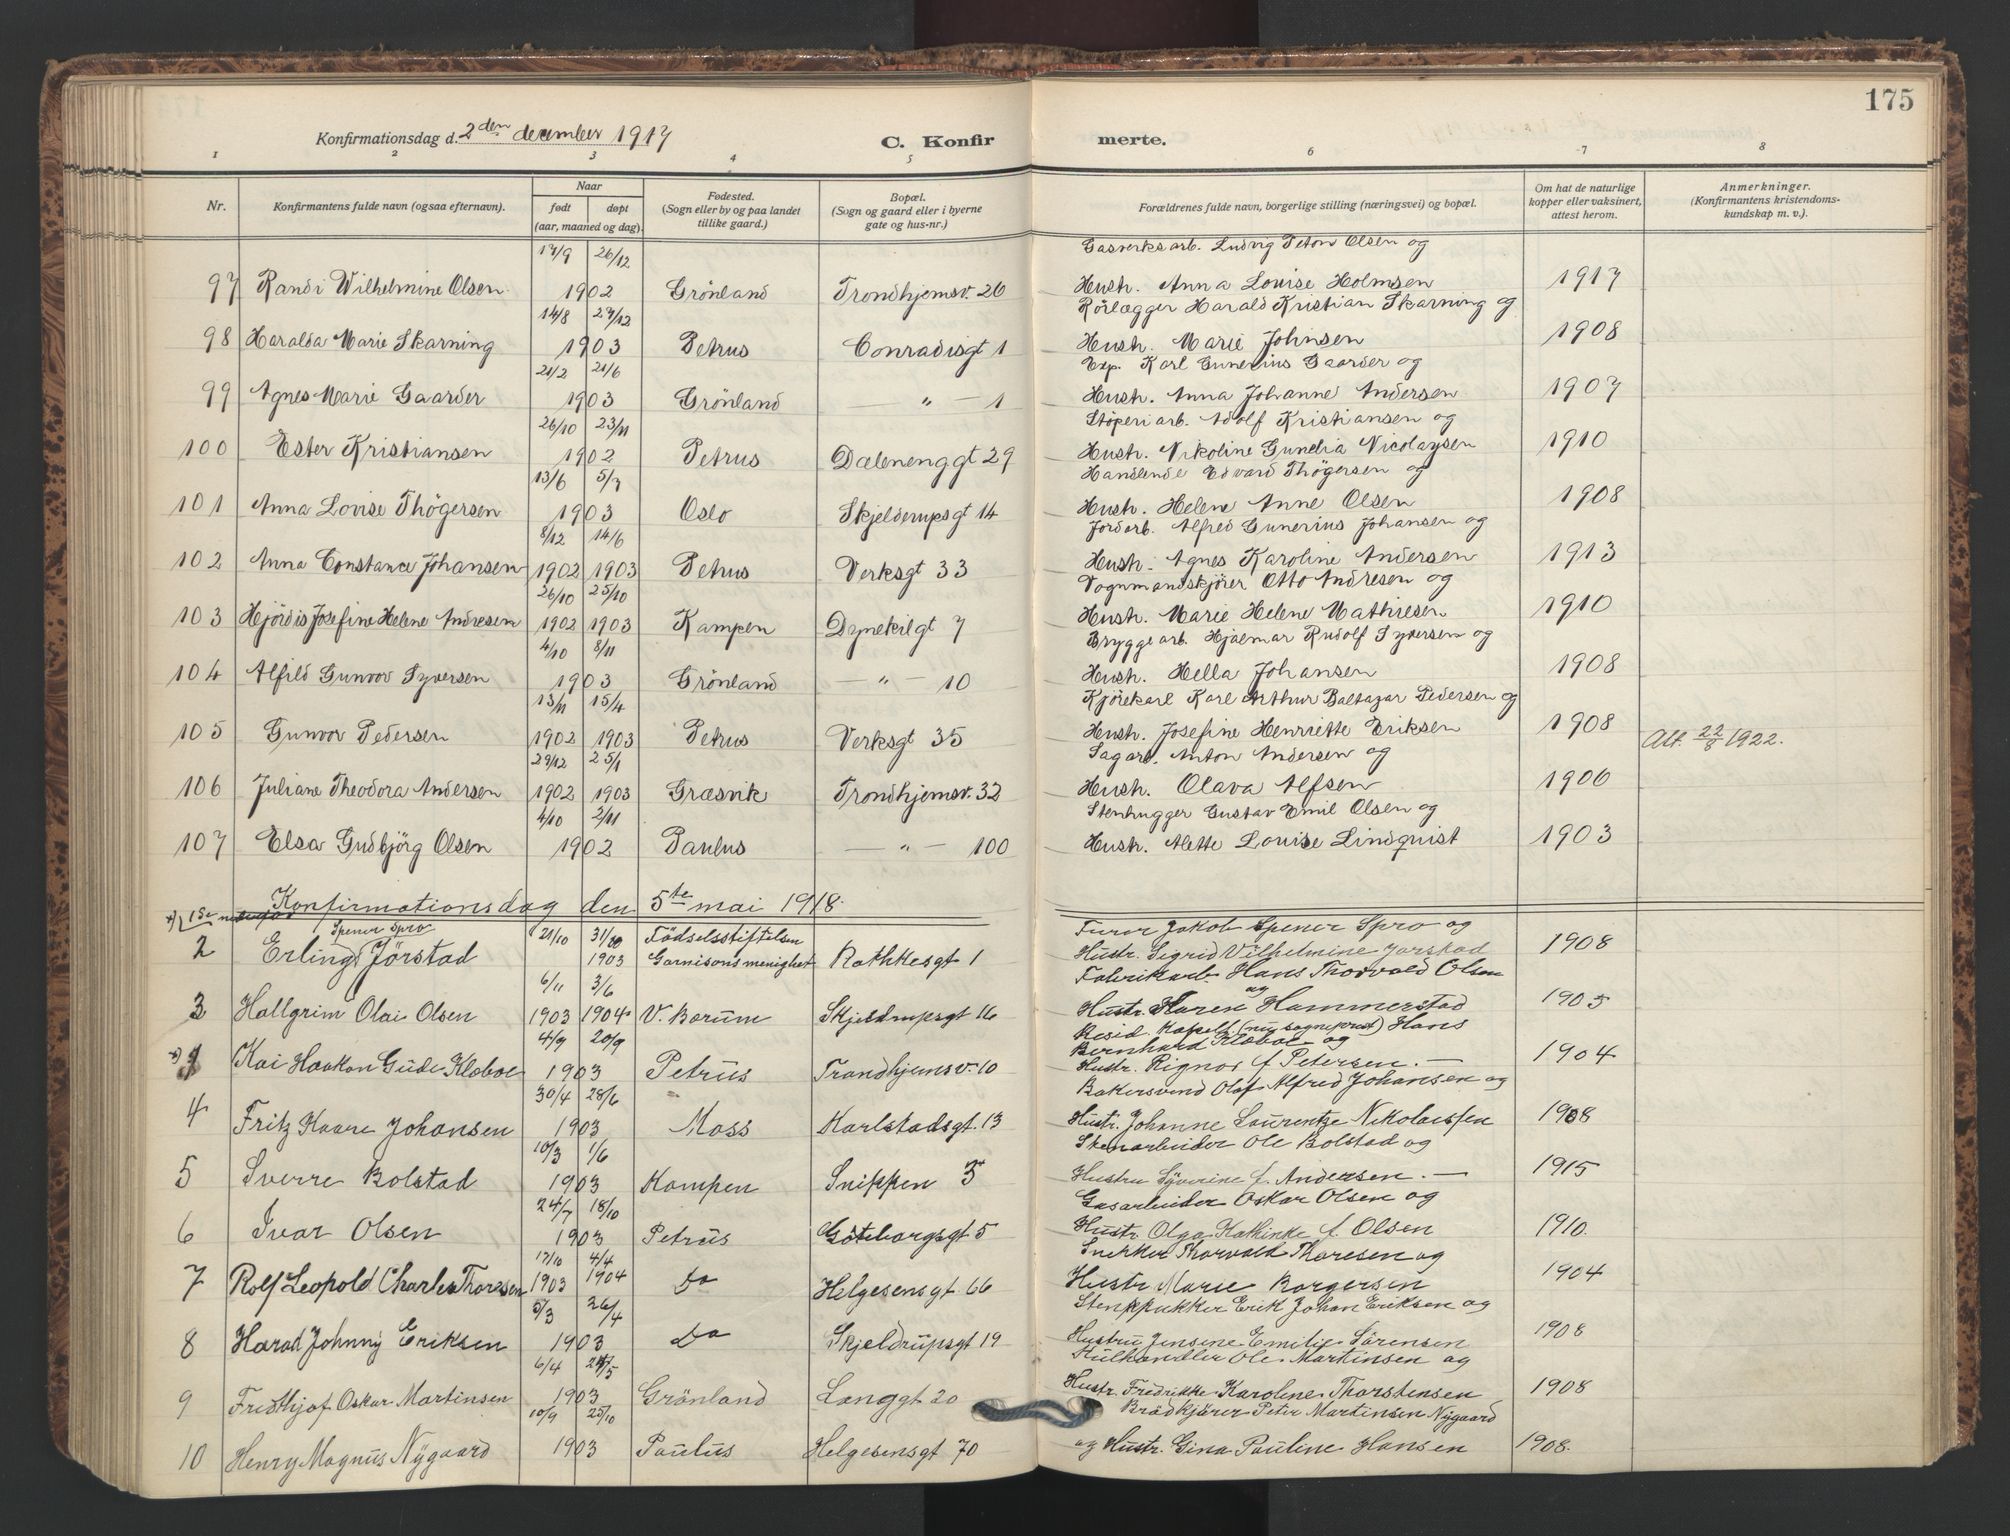 175
Konfirmationsdag d. 2den december 1917 C. Konfir merte.
1 2 3 4 5 6 7 8
Nr. Konfirmantens fulde navn (ogsaa efternavn). Naar født døpt (aar, maaned og dag). Fødested. (Sogn eller by og paa landet tillike gaard.) Bopæl. (Sogn og gaard eller i byerne gate og hus-nr.) Forældrenes fulde navn, borgerlige stilling (næringsvei) og bopæl. Om hat de naturlige kopper eller vaksinert, attest herom. Anmerkninger. (Konfirmantens kristendomskundskap m. v.).
17/9 26/12 Gasverksarb. Ludvig Olsen og
97 Randi Wilhelmine Olsen 1902 Grönland Trondhjemsv. 26 Hustr. Anna Lovise Holmsen 1917
14/8 27/12 Rörlægger Harald Kristian Skarning og
98 Haralda Marie Skarning 1903 Petrus Conradisgt 1 Hustr. Marie Johnsen 1908
21/2 21/6 Exp. Karl Gunerius Gaarder og
99 Agnes Marie Gaarder 1903 Grönland " — 1 Hustr. Anna Johanne Andersen 1907
26/10 23/11 Støperiarb. Adolf Kristiansen og
100 Ester Kristiansen 1902 Petrus Dælenenggt 29 Hustr. Nikoline Gunelia Nicolaysen 1910
13/6 5/7 Handlende Edvard Thögersen og
101 Anna Lovise Thögersen 1903 Oslo Skjelderupsgt 14 Hustr. Helene Anne Olsen 1908
8/12 14/6 Jordarb. Alfred Gunerius Johansen og
102 Anna Constance Johansen 1902 1903 Petrus Verksgt 33 Hustr. Agnes Karoline Andersen 1913
26/10 25/10 Vognmandskjörer Otto Andresen og
103 Hjördis Josefine Helene Andresen 1902 1903 Kampen Dynekilgt 7 Hustr. Marie Helene Mathiesen 1910
4/10 8/11 Bryggearb. Hjalmar Rudolf Syversen og
104 Alfild Gunvor Syversen 1903 Grönland — " — 10 Hustr. Hella Johansen 1908
13/11 15/4 Kjörekarl Karl Arthur Baltazar Pedersen og
105 Gunvor Pedersen 1902 1903 Petrus Verksgt 35 Hustr. Josefine Henriette Eriksen 1908 Att. 22/8 1922.
29/12 25/1 Sagarb. Anton Andersen og
106 Juliane Theodora Andersen 1902 1903 Græsvik Trondhjemsv. 32 Hustr. Olava Alfsen 1906
4/10 2/11 Stenhugger Gustav Emil Olsen og
107 Elsa Gudbjörg Olsen 1902 Paulus — " — 100 Hustr. Alette Louise Lindquist 1903
Konfirmationsdag den 5te mai 1918.
Spener Spro 21/10 31/ Födselsstiftelsen Jakob Spener Spro og
2 Erling Jörstad 1903 Garnisonsmenighet Rathkesgt 1 Hustr. Sigrid Vilhelmine Jorstad 1908
6/11 3/6 Fabrikarb. Hans Thorvald Olsen og
3 Hallgrim Olai Olsen 1903 1904 V. Bærum Skjeldrupsgt 16 Hustr. Karen Hammerstad 1905
4/9 20/9 Resid. Kapell. (nu sogneprest) Hans Bernhard Klæboe og
1 Kai Haakon Gude Klæboe 1903 Petrus Trondhjemsv. 10 Hustr. Rignor f. Petersen. — 1904
30/4 28/6 Bakersvend Olaf Alfred Johansen og
4 Fritz Kaare Johansen 1903 Moss Karlstadsgt. 13 Hustr. Johanne Laurentze Nikolaissen 1908
10/3 1/6 Skoarbeider Ole Bolstad og
5 Sverre Bolstad 1903 Kampen Snippen 3 Hustru Syverine f. Andersen. — 1915
24/7 18/10 Gasarbeider Oskar Olsen og
6 Ivar Olsen 1903 Petrus Göteborgsgt 5 Hustr. Olga Kathinke f. Olsen 1910.
17/10 4/4 Snekker Thorvald Thoresen og
7 Rolf Leopold Charles Thoresen 1903 1904 Do Helgesensgt 66 Hustr. Marie Borgersen 1904
5/3 26/4 Stenpukker Erik Johan Eriksen og
8 Harad Johnny Eriksen 1903 Do Skjeldrupsgt 19 Hustru Jensine Emilie Sörensen 1908
6/4 /5 Kulhandler Ole Martinsen og
9 Fridthjof Oskar Martinsen 1903 Grönland Langgt 20 Hustr. Fredrikke Karoline Thorstensen 1908
10/9 25/10 Brödkjörer Peter Martinsen Nygaard
10 Henry Magnus Nygaard 1903 Paulus Helgesensgt 70 og Hustr. Gina Pauline Hansen 1908.